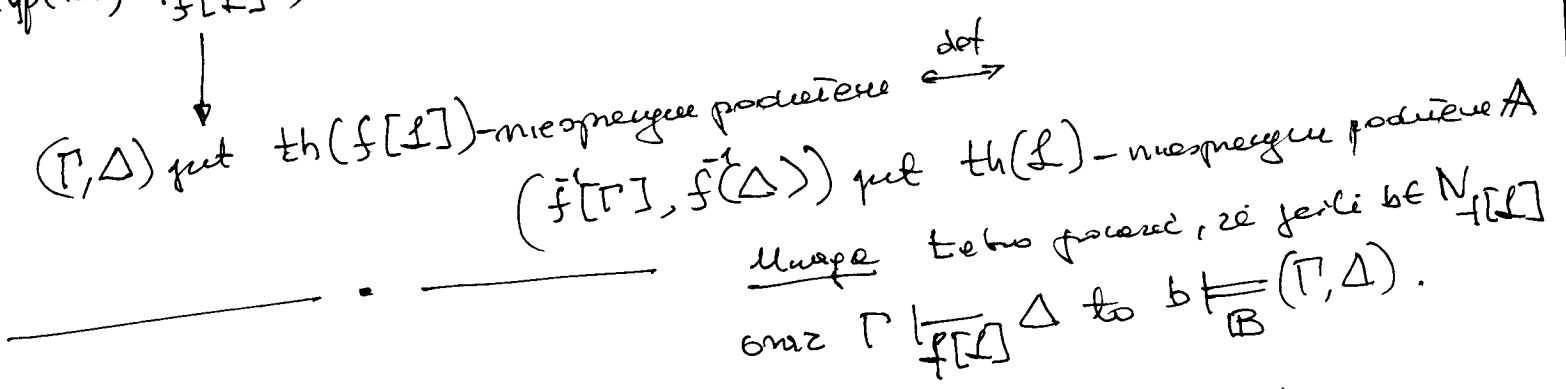 f[ℒ]
def
(Γ,Δ) jest th(f[ℒ])-niesprzeczne podzielenie ⟷
(f⁻¹[Γ], f⁻¹(Δ)) jest th(ℒ)-niesprzeczne podzielenie 𝔸
Uwaga łatwo pokazać, że jeśli b∈N_f[ℒ]
oraz Γ ⊢_f[ℒ] Δ to b ⊨_𝔹 (Γ,Δ).